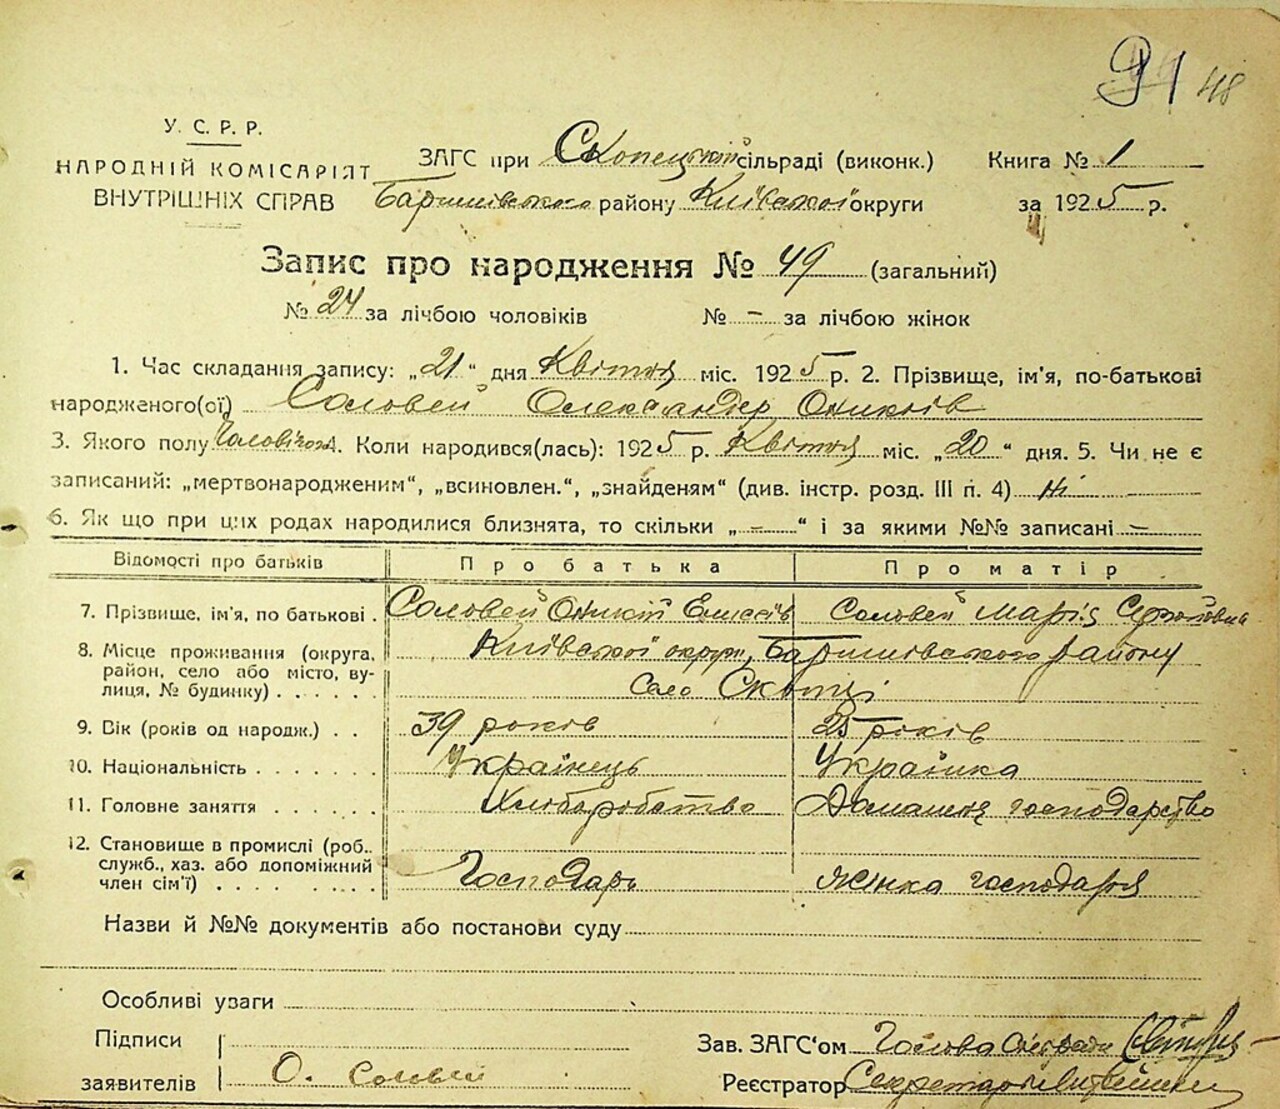 91 48
У. С. Р. Р.
НАРОДНІЙ КОМІСАРІЯТ
ВНУТРІШНІХ СПРАВ
ЗАГС при Скопецькій сільраді (виконк.) Книга № 1
Баришівського району Київської округи за 1925 р.
Запис про народження № 49 (загальний)
№ 24 за лічбою чоловіків № - за лічбою жінок
1. Час складання запису: „21“ дня Квітня міс. 1925 р. 2. Прізвище, ім'я, по-батькові
народженого(ої) Соловей Олександер Оникіїв
3. Якого полу Чоловічого 4. Коли народився(лась): 1925 р. Квітня міс. „20“ дня. 5. Чи не є
записаний: „мертвонародженим“, „всиновлен.“, „знайденям“ (див. інстр. розд. III п. 4) Ні
6. Як що при цих родах народилися близнята, то скільки „-“ і за якими №№ записані -
Відомості про батьків Про батька Про матір
7. Прізвище, ім'я, по батькові . Соловей Оникій Елисеїв Соловей Марія
8. Місце проживання (округа, район, село або місто, вулиця, № будинку) . . . . . . Київської округи, Баришівського району
село Скопці
9. Вік (років од народж.) . . 39 років 25 років
10. Національність . . . . . . . Українець Українка
11. Головне заняття . . . . . . Хліборобство Домашнє господарство
12. Становище в промислі (роб., служб., хаз. або допоміжний член сім'ї) . . . . . . . . Господарь Жінка господаря
Назви й №№ документів або постанови суду
Особливі уваги
Підписи
заявителів О. Соловей
Зав. ЗАГС'ом Голова Сільради
Реєстратор Секретарь